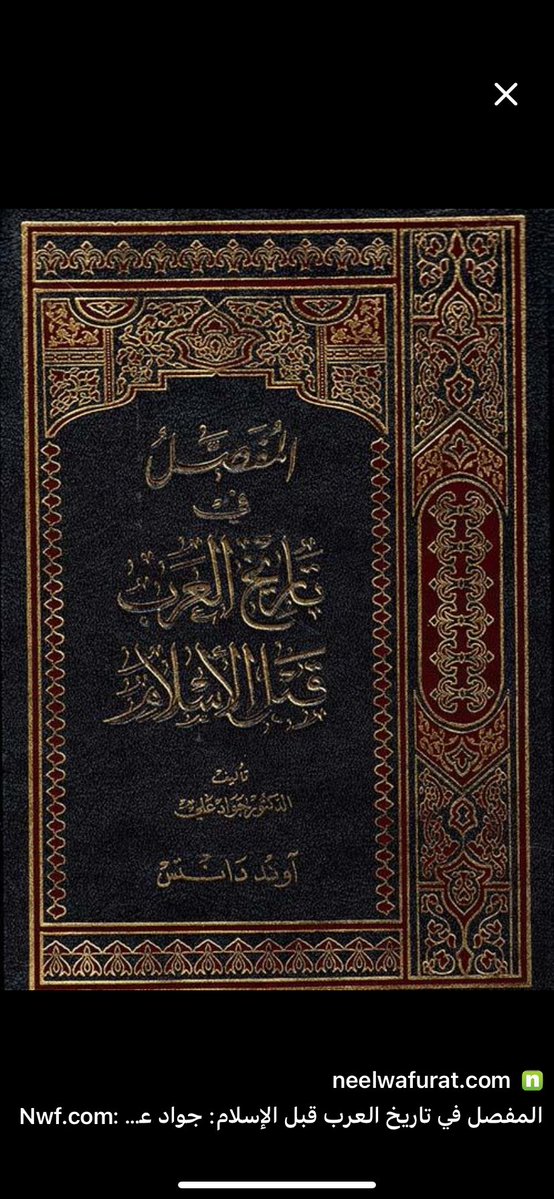 المُفَصَّلُ
في
تاريخ العرب
قبل الإسلام
تأليف
الدكتور جواد علي
آوند دانش
neelwafurat.com
المفصل في تاريخ العرب قبل الإسلام: جواد عـ... :Nwf.com